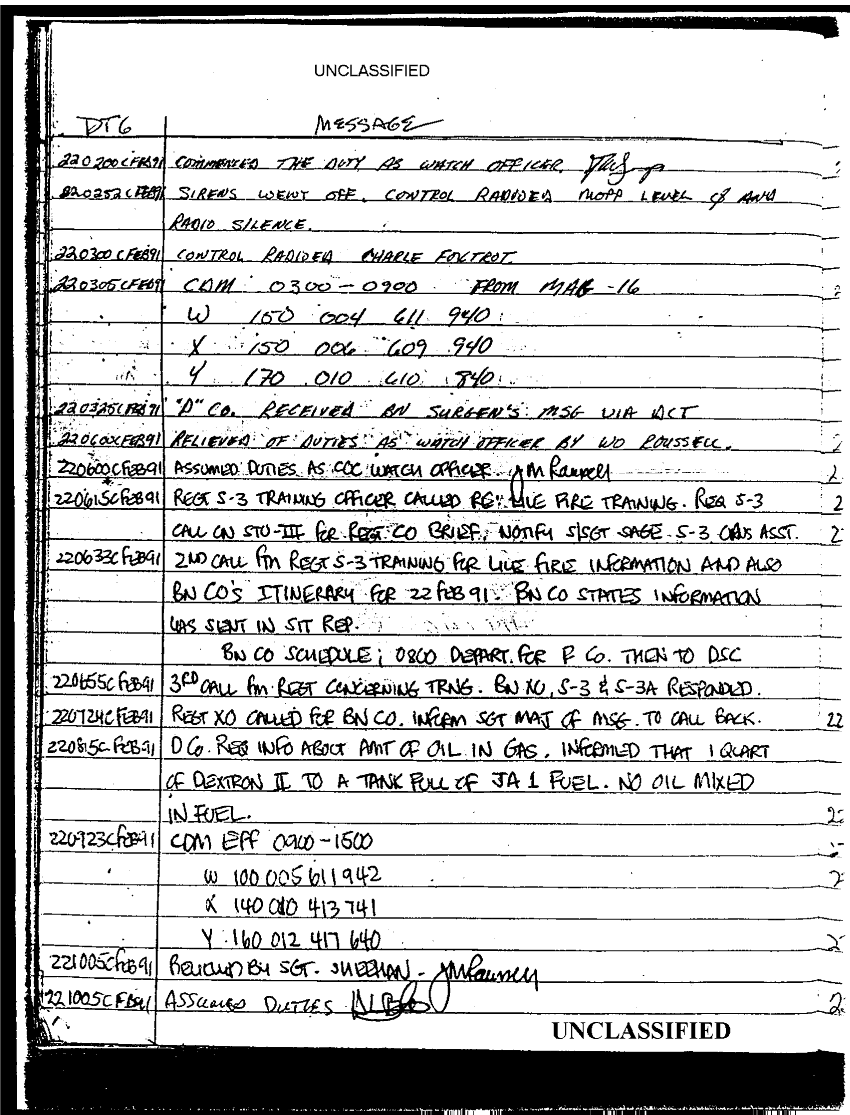 UNCLASSIFIED
DTG MESSAGE
220200CFEB91 COMMENCED THE DUTY AS WATCH OFFICER.
220252CFEB91 SIRENS WENT OFF. CONTROL RADIOED MOPP LEVEL AND
RADIO SILENCE.
220300CFEB91 CONTROL RADIOED CHARLE FOXTROT.
220305CFEB91 CDM 0300-0900 FROM MAG-16
W 150 004 611 940
X 150 006 609 940
Y 170 010 610 840
220325CFEB91 "D" CO. RECEIVED BN SURGEN'S MSG VIA DCT
220600CFEB91 RELIEVED OF DUTIES AS WATCH OFFICER BY WO ROUSSELL.
220600CFEB91 ASSUMED DUTIES AS COC WATCH OFFICER.
220615CFEB91 REGT S-3 TRAINING OFFICER CALLED RE: LIVE FIRE TRAINING. REQ S-3
CALL ON STU-III FOR REGT CO BRIEF, NOTIFY S/SGT SAGE S-3 OPNS ASST.
220633CFEB91 2ND CALL FM REGT S-3 TRAINING FOR LIVE FIRE INFORMATION AND ALSO
BN CO'S ITINERARY FOR 22 FEB 91. BN CO STATES INFORMATION
WAS SENT IN SIT REP.
BN CO SCHEDULE; 0800 DEPART. FOR CO. THEN TO DSC
220655CFEB91 3RD CALL FM REGT CONCERNING TRNG. BN XO, S-3 & S-3A RESPONDED.
220724CFEB91 REGT XO CALLED FOR BN CO. INFORM SGT MAJ OF MSG. TO CALL BACK. 22
220815CFEB91 D CO. REQ INFO ABOUT AMT OF OIL IN GAS. INFORMED THAT 1 QUART
OF DEXTRON II TO A TANK FULL OF JA 1 FUEL. NO OIL MIXED
IN FUEL.
220923CFEB91 CDM EFF 0900-1500
W 100 005 611 942
X 140 010 413 741
Y 160 012 417 640
221005CFEB91 RELIEVED BY SGT. SHEEHAN -
221005CFEB91 ASSUMED DUTIES
UNCLASSIFIED